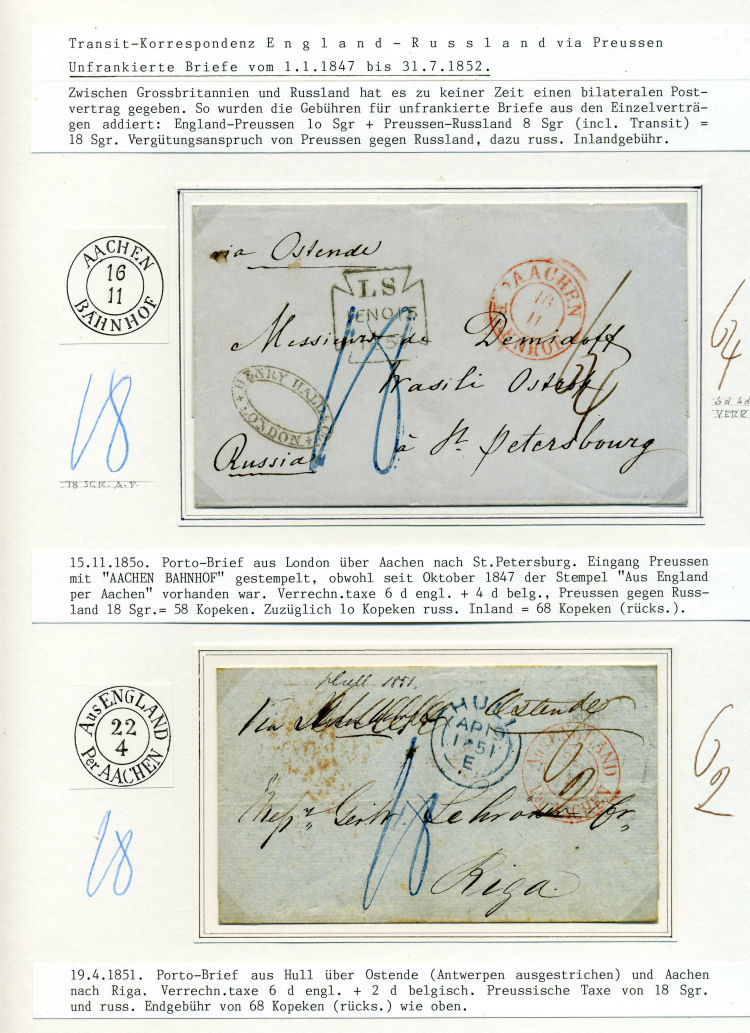 Transit-Korrespondenz E n g l a n d - R u s s l a n d via Preussen
Unfrankierte Briefe vom 1.1.1847 bis 31.7.1852.
Zwischen Grossbritannien und Russland hat es zu keiner Zeit einen bilateralen Post-
vertrag gegeben. So wurden die Gebühren für unfrankierte Briefe aus den Einzelverträ-
gen addiert: England-Preussen 1o Sgr + Preussen-Russland 8 Sgr (incl. Transit) =
18 Sgr. Vergütungsanspruch von Preussen gegen Russland, dazu russ. Inlandgebühr.
AACHEN
16
11
BAHNHOF
18
18 SGR. A.P.
via Ostende
LS
ENO15
AACHEN
BAHNHOF
Messieurs de Demidoff
Wasili Ostroff
à St. Petersbourg
Russia
HENRY HALD & Co
LONDON
18
6/4
6/4
6d 4d
VERR
15.11.185o. Porto-Brief aus London über Aachen nach St.Petersburg. Eingang Preussen
mit "AACHEN BAHNHOF" gestempelt, obwohl seit Oktober 1847 der Stempel "Aus England
per Aachen" vorhanden war. Verrechn.taxe 6 d engl. + 4 d belg., Preussen gegen Russ-
land 18 Sgr.= 58 Kopeken. Zuzüglich 1o Kopeken russ. Inland = 68 Kopeken (rücks.).
Aus ENGLAND
22
4
Per AACHEN
18
Hull 1851.
Via Ostende
HULL
AP19
1851
E
Aus ENGLAND
Per AACHEN
6
2
Messrs Gebr. Schröder
Riga
18
6
2
19.4.1851. Porto-Brief aus Hull über Ostende (Antwerpen ausgestrichen) und Aachen
nach Riga. Verrechn.taxe 6 d engl. + 2 d belgisch. Preussische Taxe von 18 Sgr.
und russ. Endgebühr von 68 Kopeken (rücks.) wie oben.